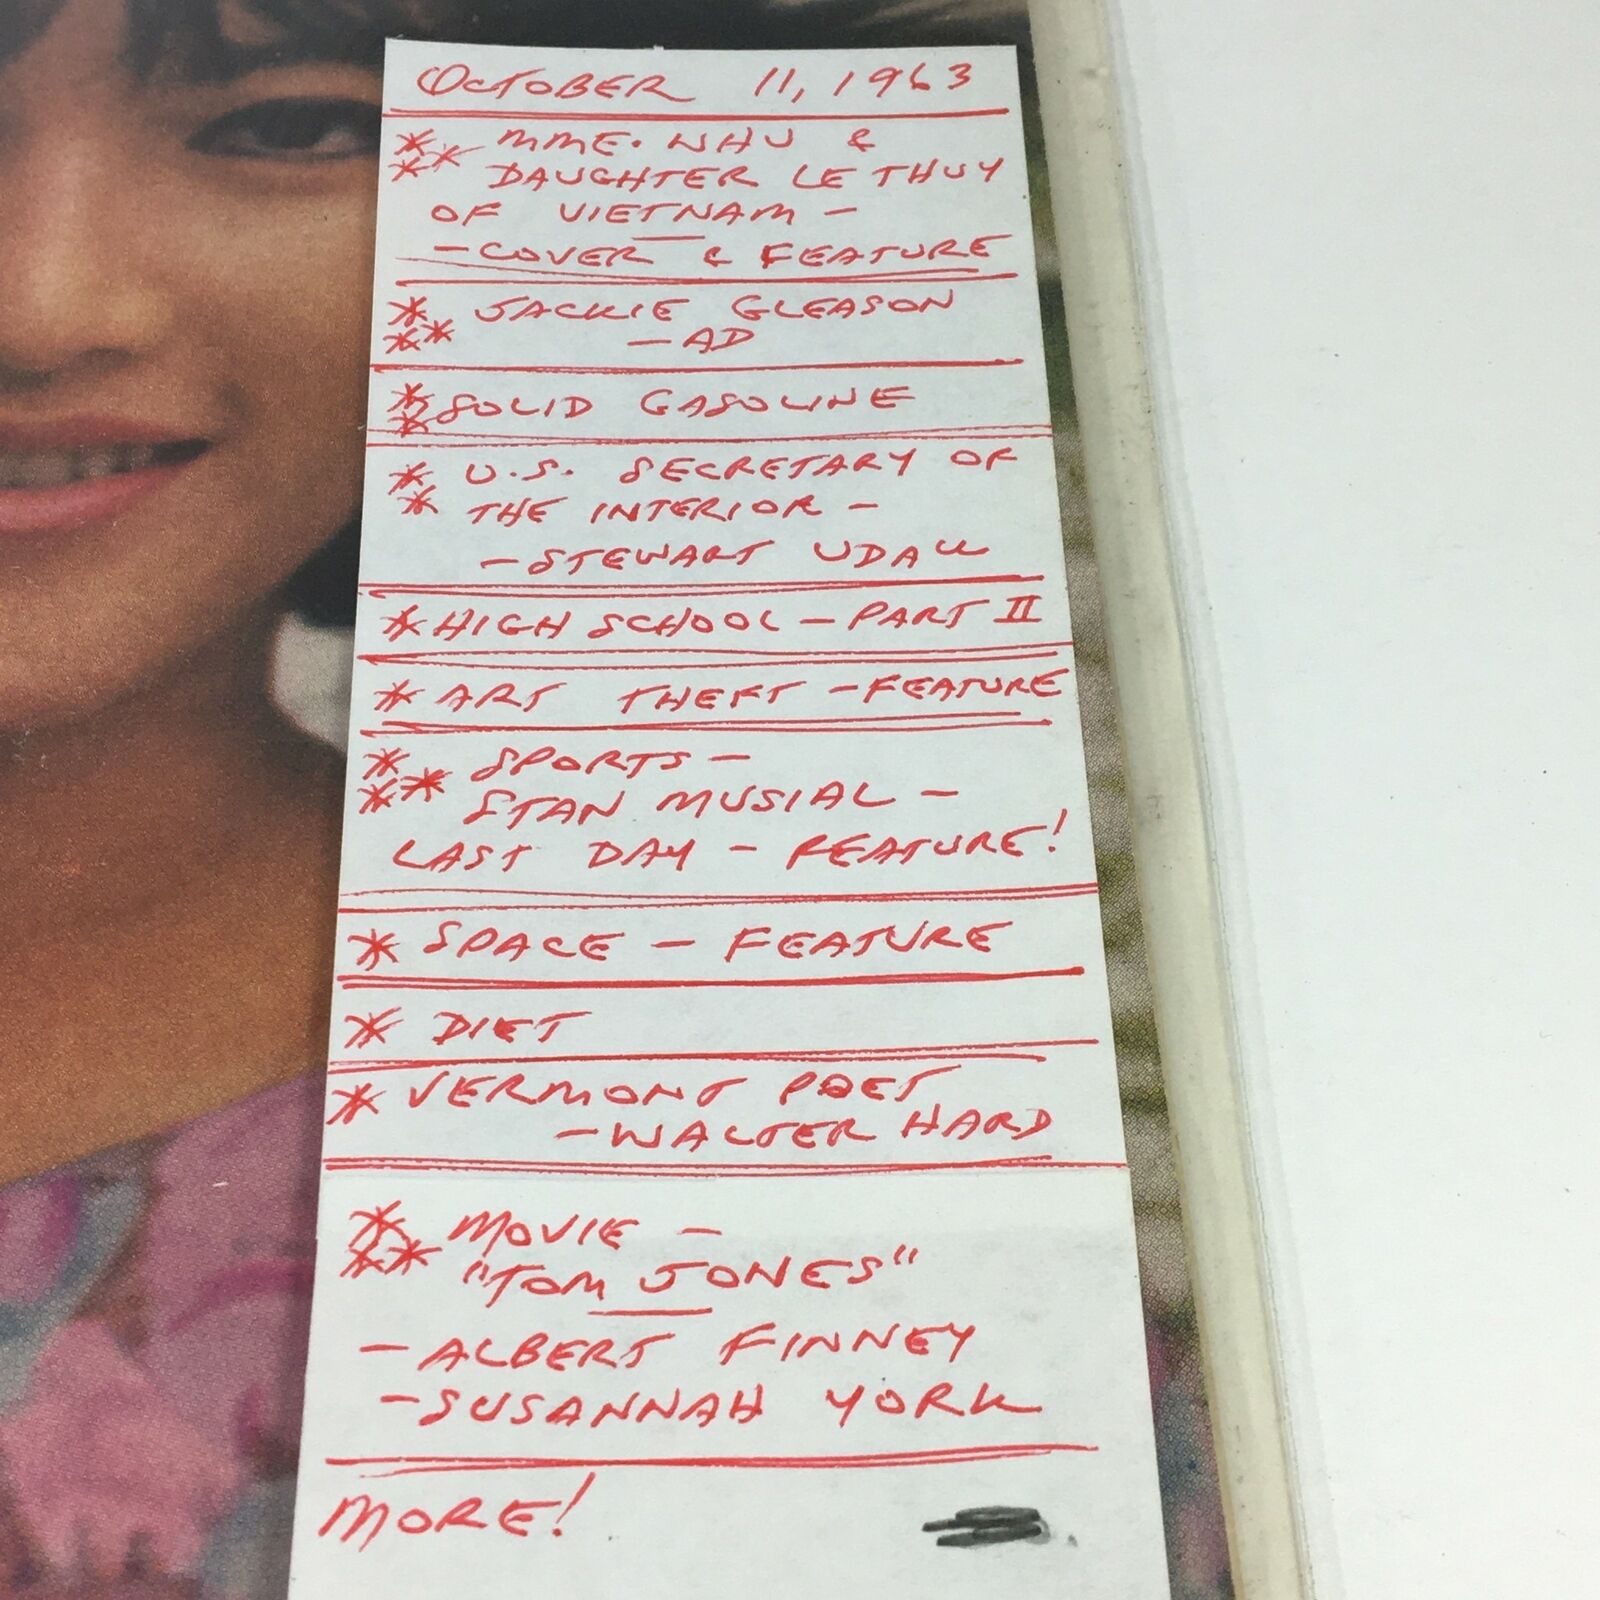 OCTOBER 11, 1963
* MME. NHU &
** DAUGHTER LE THUY
OF VIETNAM -
- COVER & FEATURE
* JACKIE GLEASON
** - AD
* SOLID GASOLINE
*
* U.S. SECRETARY OF
* THE INTERIOR -
- STEWART UDALL
* HIGH SCHOOL - PART II
* ART THEFT - FEATURE
* SPORTS -
** STAN MUSIAL -
LAST DAY - FEATURE!
* SPACE - FEATURE
* DIET
* VERMONT POET
- WALTER HARD
* MOVIE -
** "TOM JONES"
- ALBERT FINNEY
- SUSANNAH YORK
MORE!